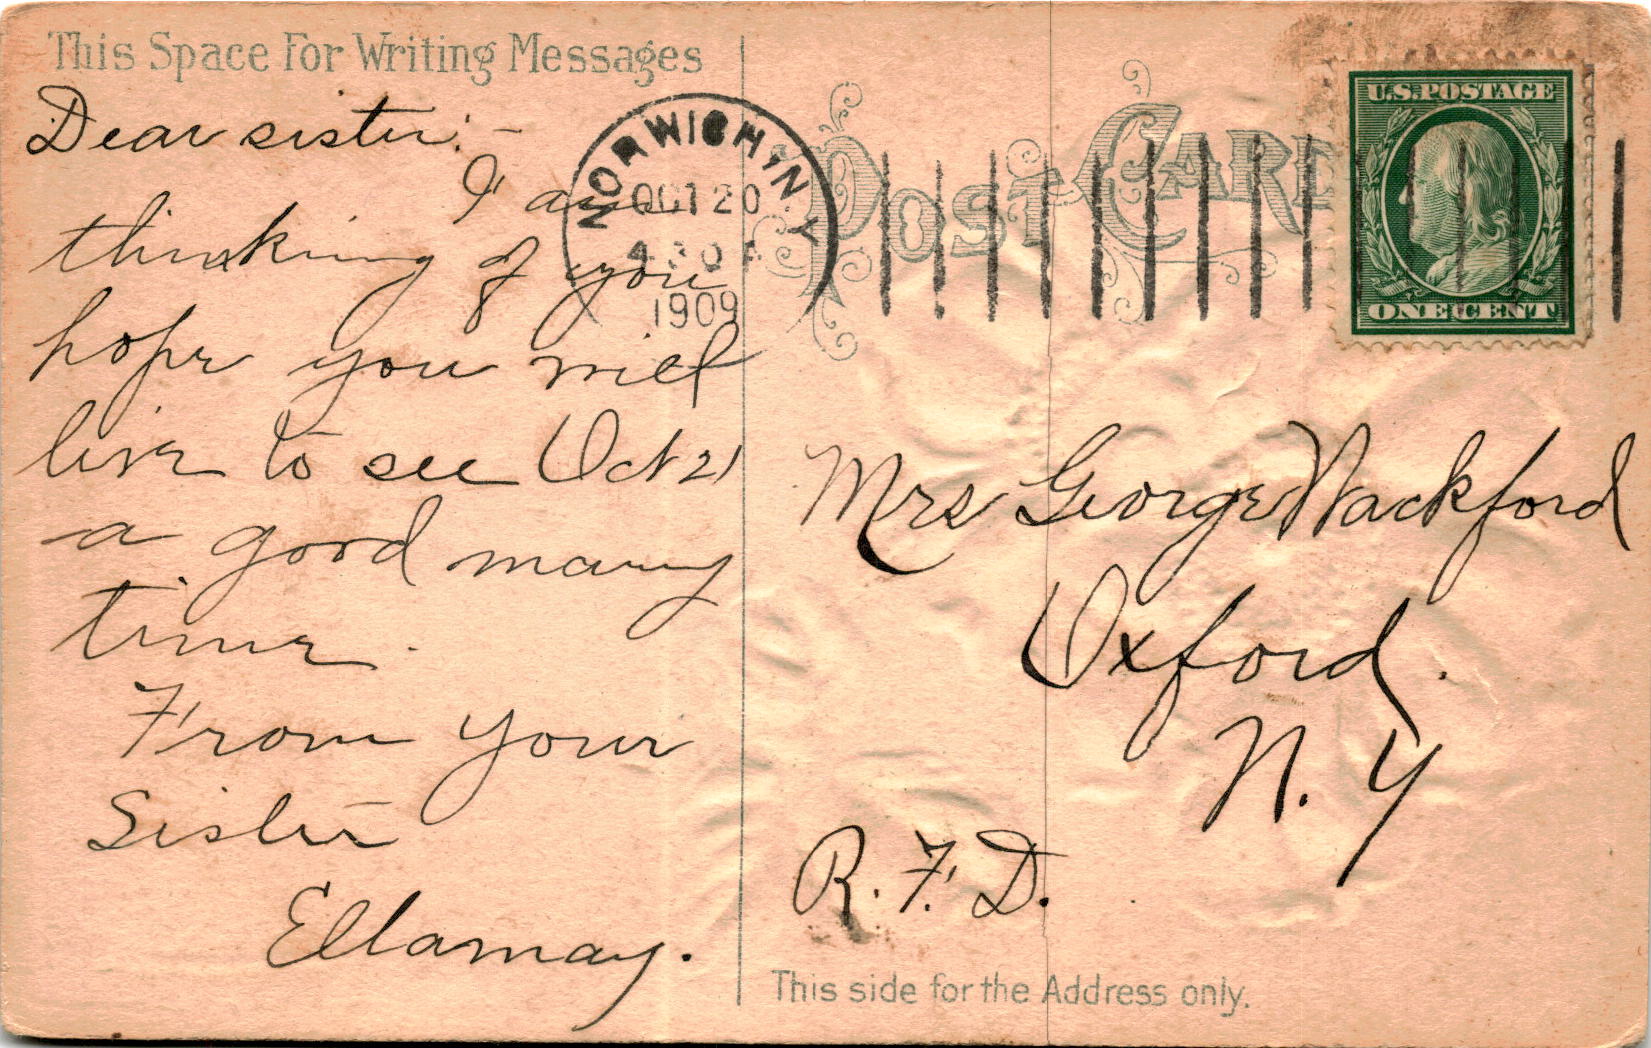 This Space For Writing Messages
Dear sister:-
I am
thinking of you
hope you will
live to see Oct 21
a good many
time.
From your
Sister
Ellamay.
NORWICH, N.Y.
OCT 20
4 30 P
1909
POST CARD
U.S. POSTAGE
ONE CENT
Mrs George Wackford
Oxford.
N. Y
R. F. D.
This side for the Address only.